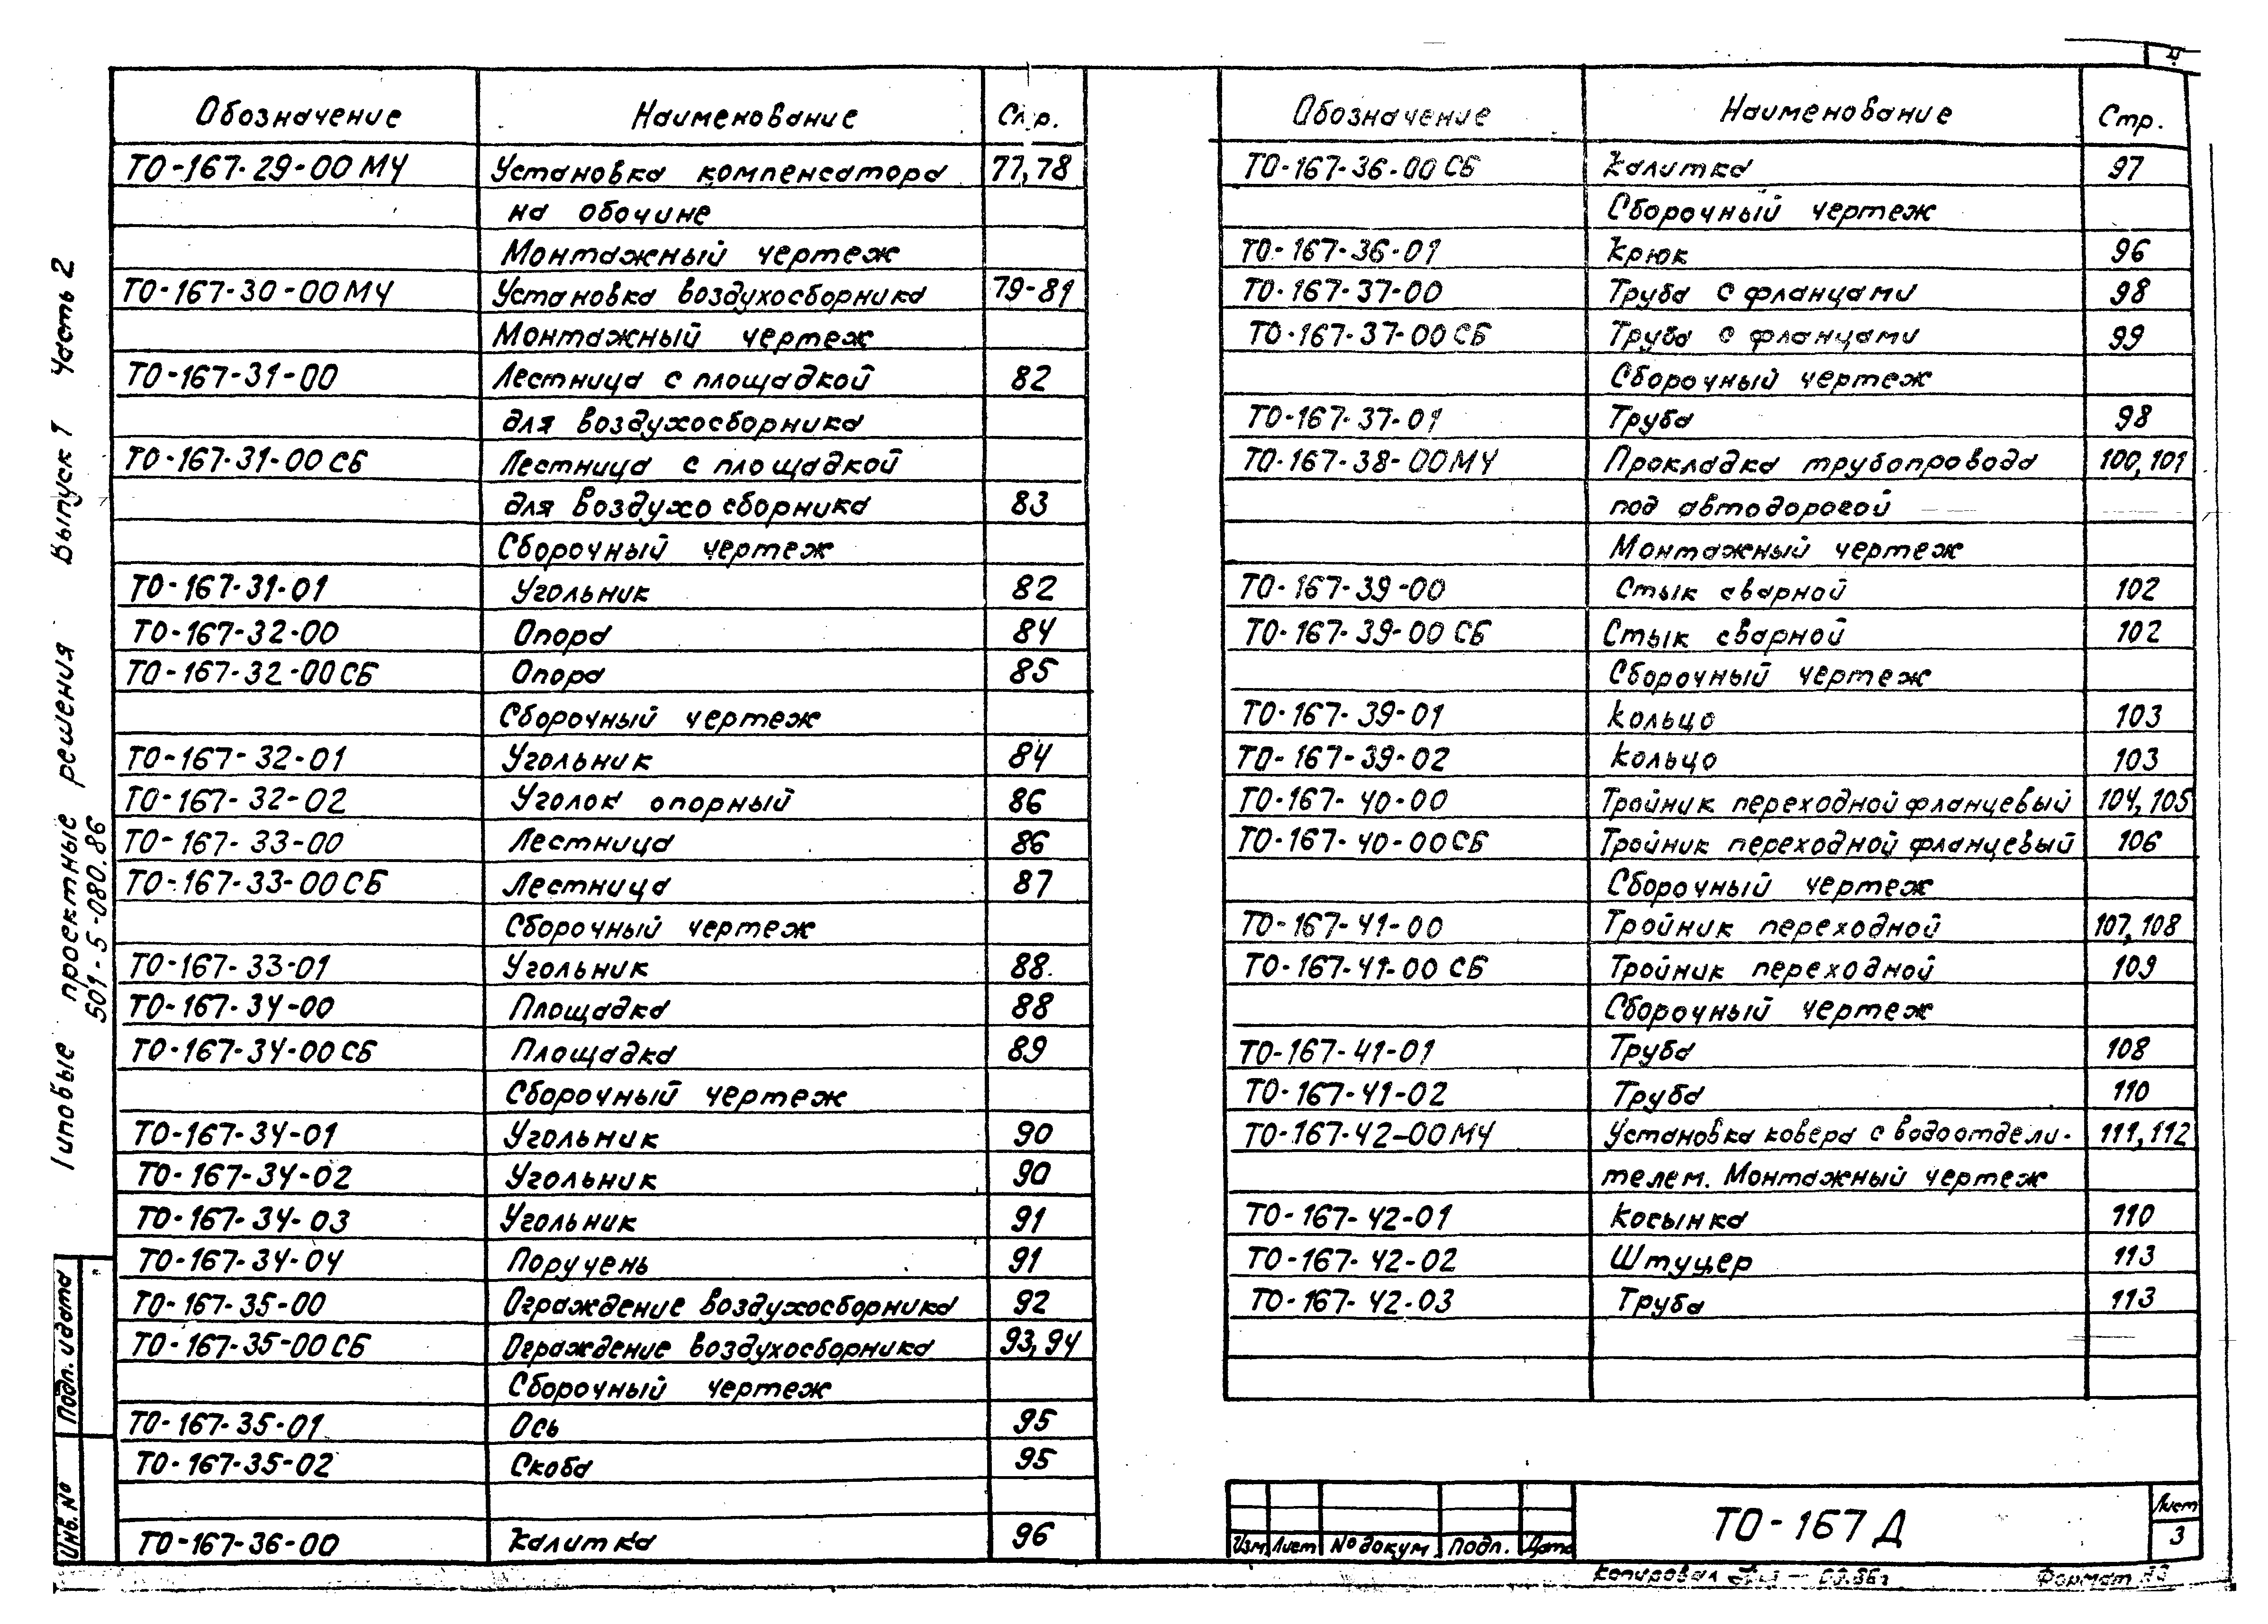 4
Типовые проектные решения Выпуск 1 Часть 2
501-5-080.86
Обозначение Наименование Стр.
ТО-167-29-00 МЧ Установка компенсатора 77,78
на обочине
Монтажный чертеж
ТО-167-30-00 МЧ Установка воздухосборника 79-81
Монтажный чертеж
ТО-167-31-00 Лестница с площадкой 82
для воздухосборника
ТО-167-31-00 СБ Лестница с площадкой
для воздухосборника 83
Сборочный чертеж
ТО-167-31-01 Угольник 82
ТО-167-32-00 Опора 84
ТО-167-32-00 СБ Опора 85
Сборочный чертеж
ТО-167-32-01 Угольник 84
ТО-167-32-02 Уголок опорный 86
ТО-167-33-00 Лестница 86
ТО-167-33-00 СБ Лестница 87
Сборочный чертеж
ТО-167-33-01 Угольник 88
ТО-167-34-00 Площадка 88
ТО-167-34-00 СБ Площадка 89
Сборочный чертеж
ТО-167-34-01 Угольник 90
ТО-167-34-02 Угольник 90
ТО-167-34-03 Угольник 91
ТО-167-34-04 Поручень 91
ТО-167-35-00 Ограждение воздухосборника 92
ТО-167-35-00 СБ Ограждение воздухосборника 93,94
Сборочный чертеж
ТО-167-35-01 Ось 95
ТО-167-35-02 Скоба 95
ТО-167-36-00 Калитка 96
Обозначение Наименование Стр.
ТО-167-36-00 СБ Калитка 97
Сборочный чертеж
ТО-167-36-01 Крюк 96
ТО-167-37-00 Труба с фланцами 98
ТО-167-37-00 СБ Труба с фланцами 99
Сборочный чертеж
ТО-167-37-01 Труба 98
ТО-167-38-00 МЧ Прокладка трубопровода 100,101
под автодорогой
Монтажный чертеж
ТО-167-39-00 Стык сварной 102
ТО-167-39-00 СБ Стык сварной 102
Сборочный чертеж
ТО-167-39-01 Кольцо 103
ТО-167-39-02 Кольцо 103
ТО-167-40-00 Тройник переходной фланцевый 104,105
ТО-167-40-00 СБ Тройник переходной фланцевый 106
Сборочный чертеж
ТО-167-41-00 Тройник переходной 107,108
ТО-167-41-00 СБ Тройник переходной 109
Сборочный чертеж
ТО-167-41-01 Труба 108
ТО-167-41-02 Труба 110
ТО-167-42-00 МЧ Установка ковера с водоотдели- 111,112
телем. Монтажный чертеж
ТО-167-42-01 Косынка 110
ТО-167-42-02 Штуцер 113
ТО-167-42-03 Труба 113
Инв. № Подп. и дата
Изм. Лист № докум. Подп. Дата
ТО-167 Д
Лист
3
Копировал 09.86г Формат А3